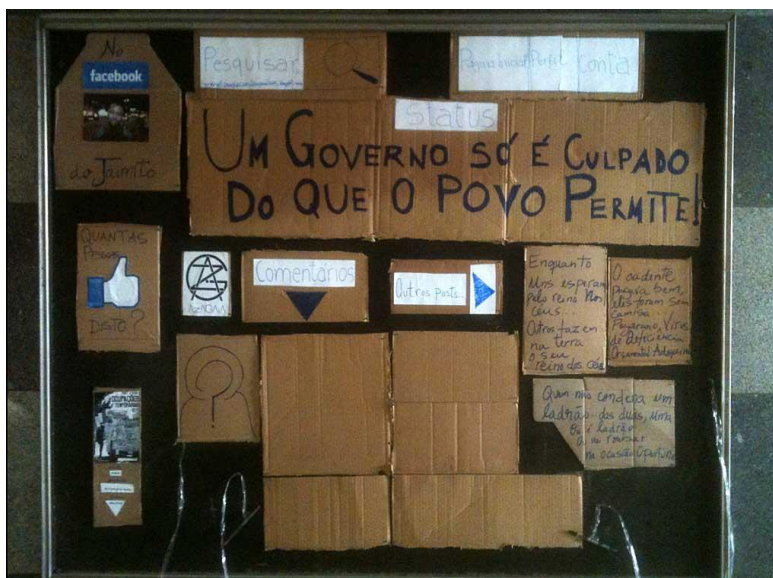 No
facebook
do Jaimito
Pesquisar
Página Inicial Perfil Conta
Status
UM GOVERNO SÓ É CULPADO
DO QUE O POVO PERMITE!
QUANTAS
Pessoas
DISTO?
Comentários
Outros posts...
Enquanto
uns esperam
pelo reino nos
ceus...
Outros fazem
na terra
o seu
reino dos céus
O cadente
bem,
eles foram sem
camisa.
Vírus
de Deficiência
Quem não condena um
ladrão das duas, uma
Ou é ladrão
Ou
na ocasião Oportuna